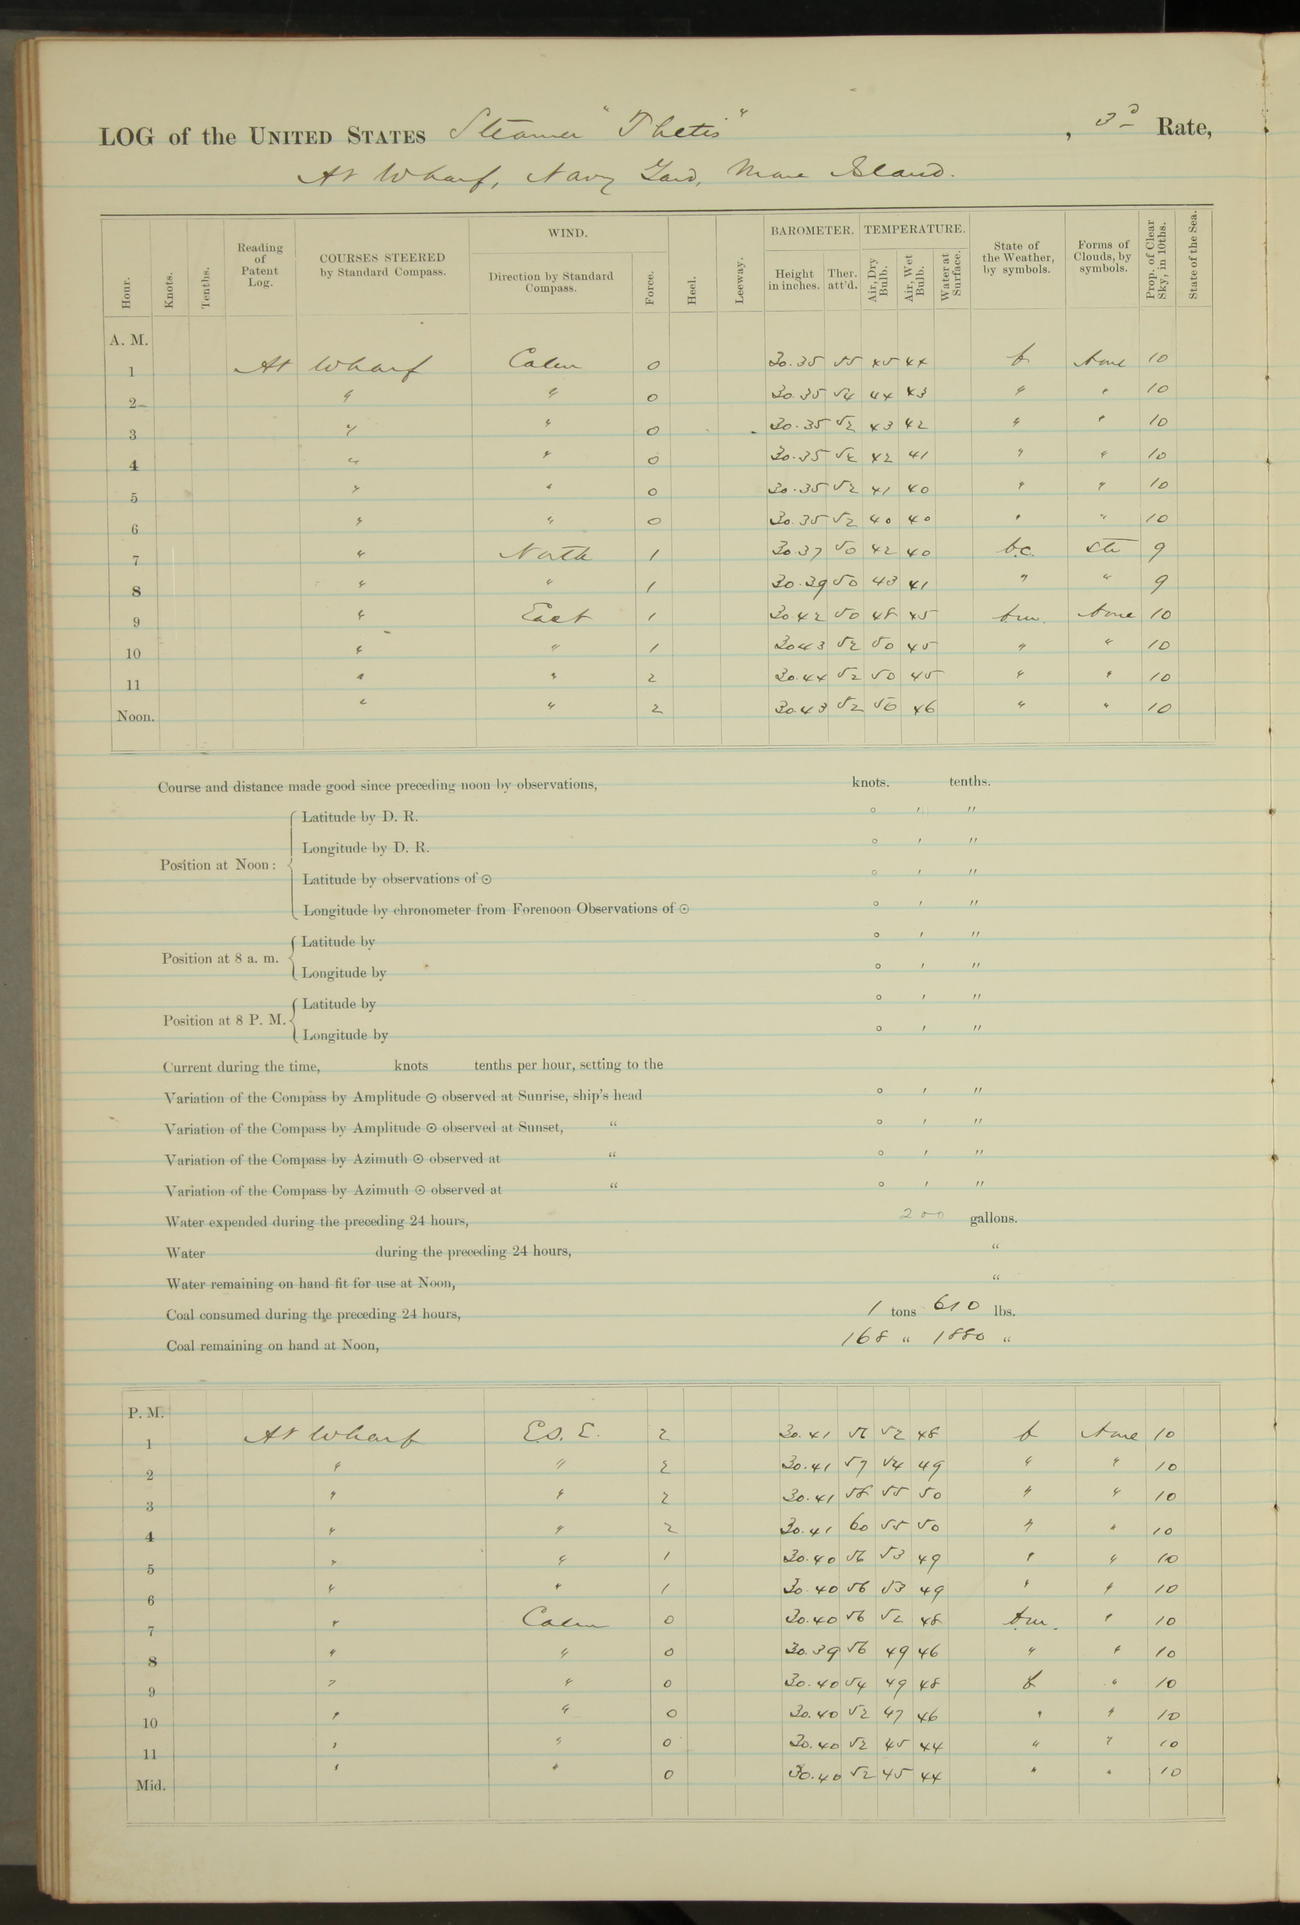 LOG of the UNITED STATES Steamer "Thetis", 3d Rate,
At Wharf, Navy Yard, Mare Island.
Hour. Knots. Tenths. Reading of Patent Log. COURSES STEERED by Standard Compass. WIND. Direction by Standard Compass. Force. Heel. Leeway. BAROMETER. Height in inches. Ther. att'd. TEMPERATURE. Air, Dry Bulb. Air, Wet Bulb. Water at Surface. State of the Weather, by symbols. Forms of Clouds, by symbols. Prop. of Clear Sky, in 10ths. State of the Sea.
A. M.
1 At Wharf Calm 0 30.35 55 45 44 b None 10
2 " " 0 30.35 54 44 43 " " 10
3 " " 0 30.35 52 43 42 " " 10
4 " " 0 30.35 52 42 41 " " 10
5 " " 0 30.35 52 41 40 " " 10
6 " " 0 30.35 52 40 40 " " 10
7 " North 1 30.37 50 42 40 b.c. str 9
8 " " 1 30.39 50 43 41 " " 9
9 " East 1 30.42 50 48 45 b.m. None 10
10 " " 1 30.43 52 50 45 " " 10
11 " " 2 30.44 52 50 45 " " 10
Noon. " " 2 30.43 52 50 46 " " 10
Course and distance made good since preceding noon by observations, knots. tenths.
Position at Noon: Latitude by D. R. ° ′ ″
Longitude by D. R. ° ′ ″
Latitude by observations of ☉ ° ′ ″
Longitude by chronometer from Forenoon Observations of ☉ ° ′ ″
Position at 8 a. m. Latitude by ° ′ ″
Longitude by ° ′ ″
Position at 8 P. M. Latitude by ° ′ ″
Longitude by ° ′ ″
Current during the time, knots tenths per hour, setting to the
Variation of the Compass by Amplitude ☉ observed at Sunrise, ship's head ° ′ ″
Variation of the Compass by Amplitude ☉ observed at Sunset, " ° ′ ″
Variation of the Compass by Azimuth ☉ observed at " ° ′ ″
Variation of the Compass by Azimuth ☉ observed at " ° ′ ″
Water expended during the preceding 24 hours, 200 gallons.
Water during the preceding 24 hours, "
Water remaining on hand fit for use at Noon, "
Coal consumed during the preceding 24 hours, 1 tons 610 lbs.
Coal remaining on hand at Noon, 168 " 1880 "
P. M.
1 At Wharf E.S.E. 2 30.41 56 52 48 b None 10
2 " " 2 30.41 57 54 49 " " 10
3 " " 2 30.41 58 55 50 " " 10
4 " " 2 30.41 60 55 50 " " 10
5 " " 1 30.40 56 53 49 " " 10
6 " " 1 30.40 56 53 49 " " 10
7 " Calm 0 30.40 56 52 48 b.m. " 10
8 " " 0 30.39 56 49 46 " " 10
9 " " 0 30.40 54 49 48 b " 10
10 " " 0 30.40 52 47 46 " " 10
11 " " 0 30.40 52 45 44 " " 10
Mid. " " 0 30.40 52 45 44 " " 10